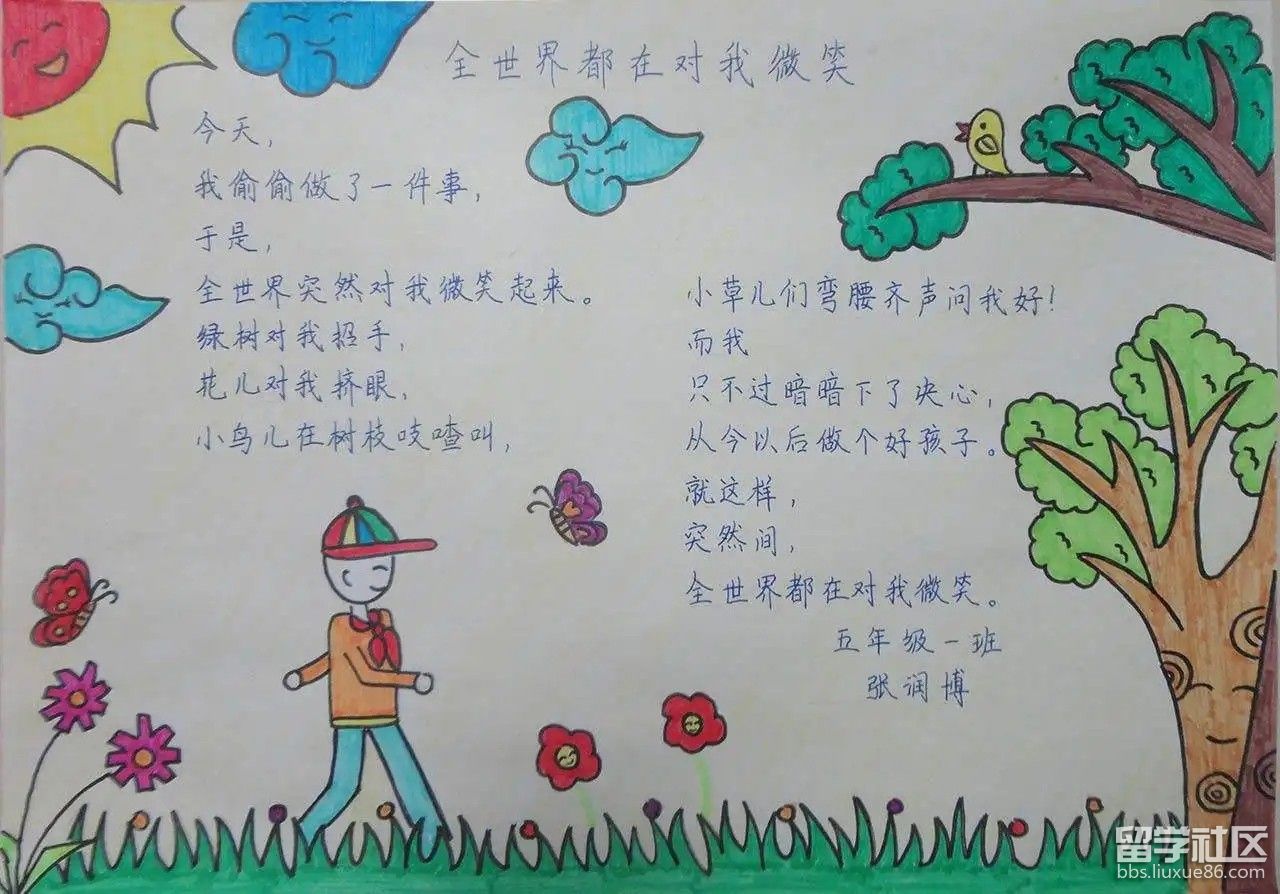 全世界都在对我微笑
今天，
我偷偷做了一件事，
于是，
全世界突然对我微笑起来。
绿树对我招手，
花儿对我挤眼，
小鸟儿在树枝吱喳叫，
小草儿们弯腰齐声问我好！
而我
只不过暗暗下了决心，
从今以后做个好孩子。
就这样，
突然间，
全世界都在对我微笑。
五年级一班
张润博
留学社区
bbs.liuxue86.com